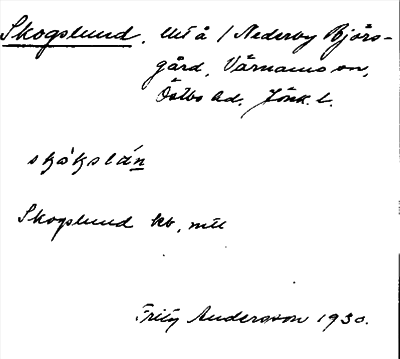 Skogslund, utå / Nederby Björs-
gård, Värnamo sn,
Östbo hd. Jönk. l.
skókslán
Skogslund kb, mtl
Fritz Andersson 1930.